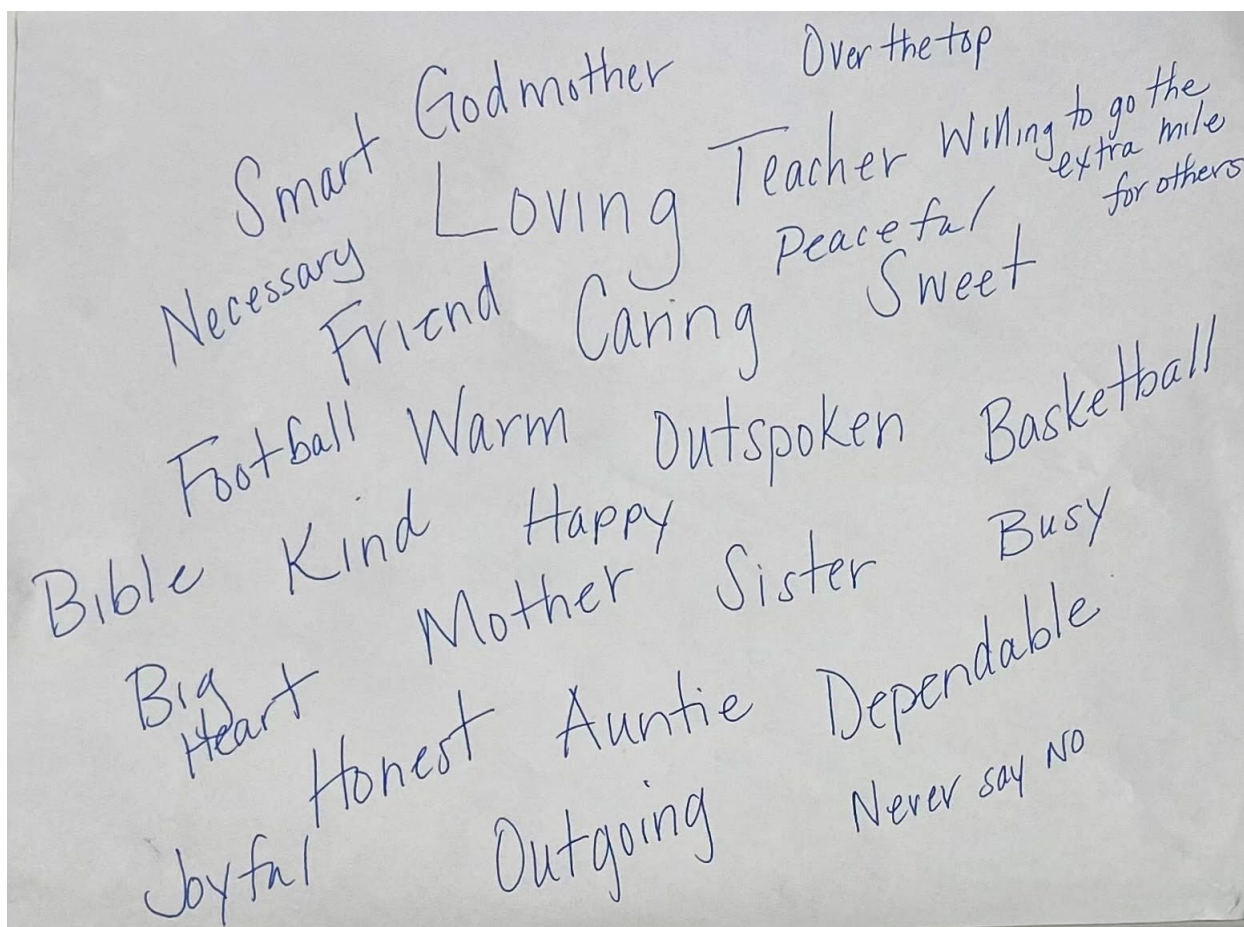 Godmother Over the top
Smart Loving Teacher Willing to go the
extra mile
for others
Necessary Friend Caring Peaceful Sweet
Football Warm Outspoken Basketball
Bible Kind Happy
Mother Sister Busy
Big
Heart
Honest Auntie Dependable
Joyful Outgoing Never say NO